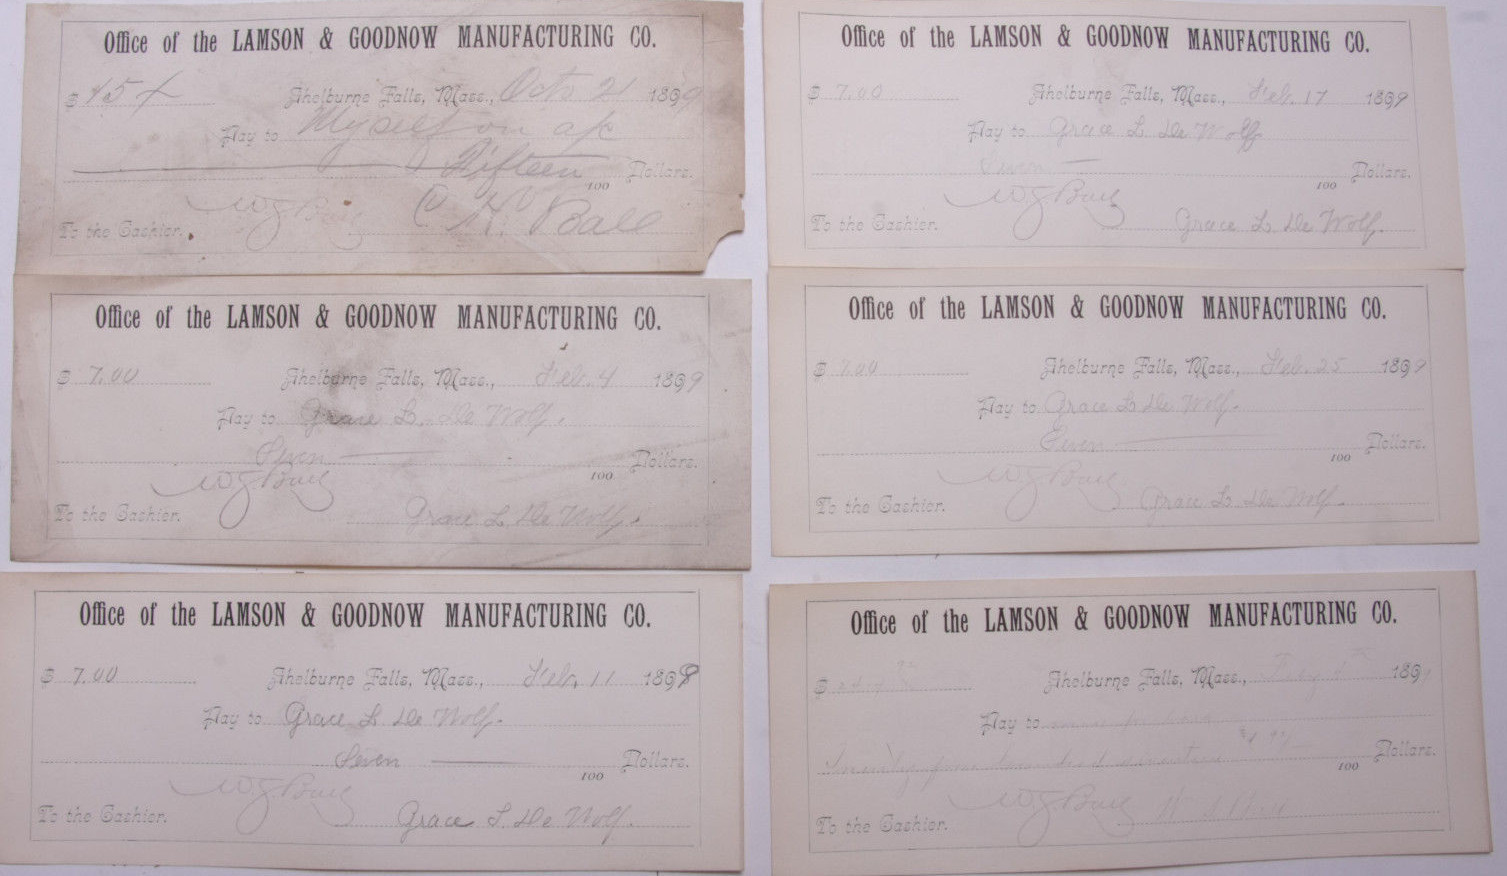 Office of the LAMSON & GOODNOW MANUFACTURING CO.
$ 15 Shelburne Falls, Mass., Oct 21 1899
Pay to Myself on a/c
Fifteen 100 Dollars.
To the Cashier. C H Ball
Office of the LAMSON & GOODNOW MANUFACTURING CO.
$ 7.00 Shelburne Falls, Mass., Feb. 4 1899
Pay to Grace L. De Wolf.
Seven 100 Dollars.
To the Cashier. Grace L. De Wolf.
Office of the LAMSON & GOODNOW MANUFACTURING CO.
$ 7.00 Shelburne Falls, Mass., Feb. 11 1899
Pay to Grace L. De Wolf.
Seven 100 Dollars.
To the Cashier. Grace L. De Wolf.
Office of the LAMSON & GOODNOW MANUFACTURING CO.
$ 7.00 Shelburne Falls, Mass., Feb. 17 1899
Pay to Grace L. De Wolf
Seven 100 Dollars.
To the Cashier. Grace L. De Wolf.
Office of the LAMSON & GOODNOW MANUFACTURING CO.
$ 7.00 Shelburne Falls, Mass., Feb. 25 1899
Pay to Grace L. De Wolf.
Seven 100 Dollars.
To the Cashier. Grace L. De Wolf.
Office of the LAMSON & GOODNOW MANUFACTURING CO.
$ Shelburne Falls, Mass., 189
Pay to
100 Dollars.
To the Cashier.